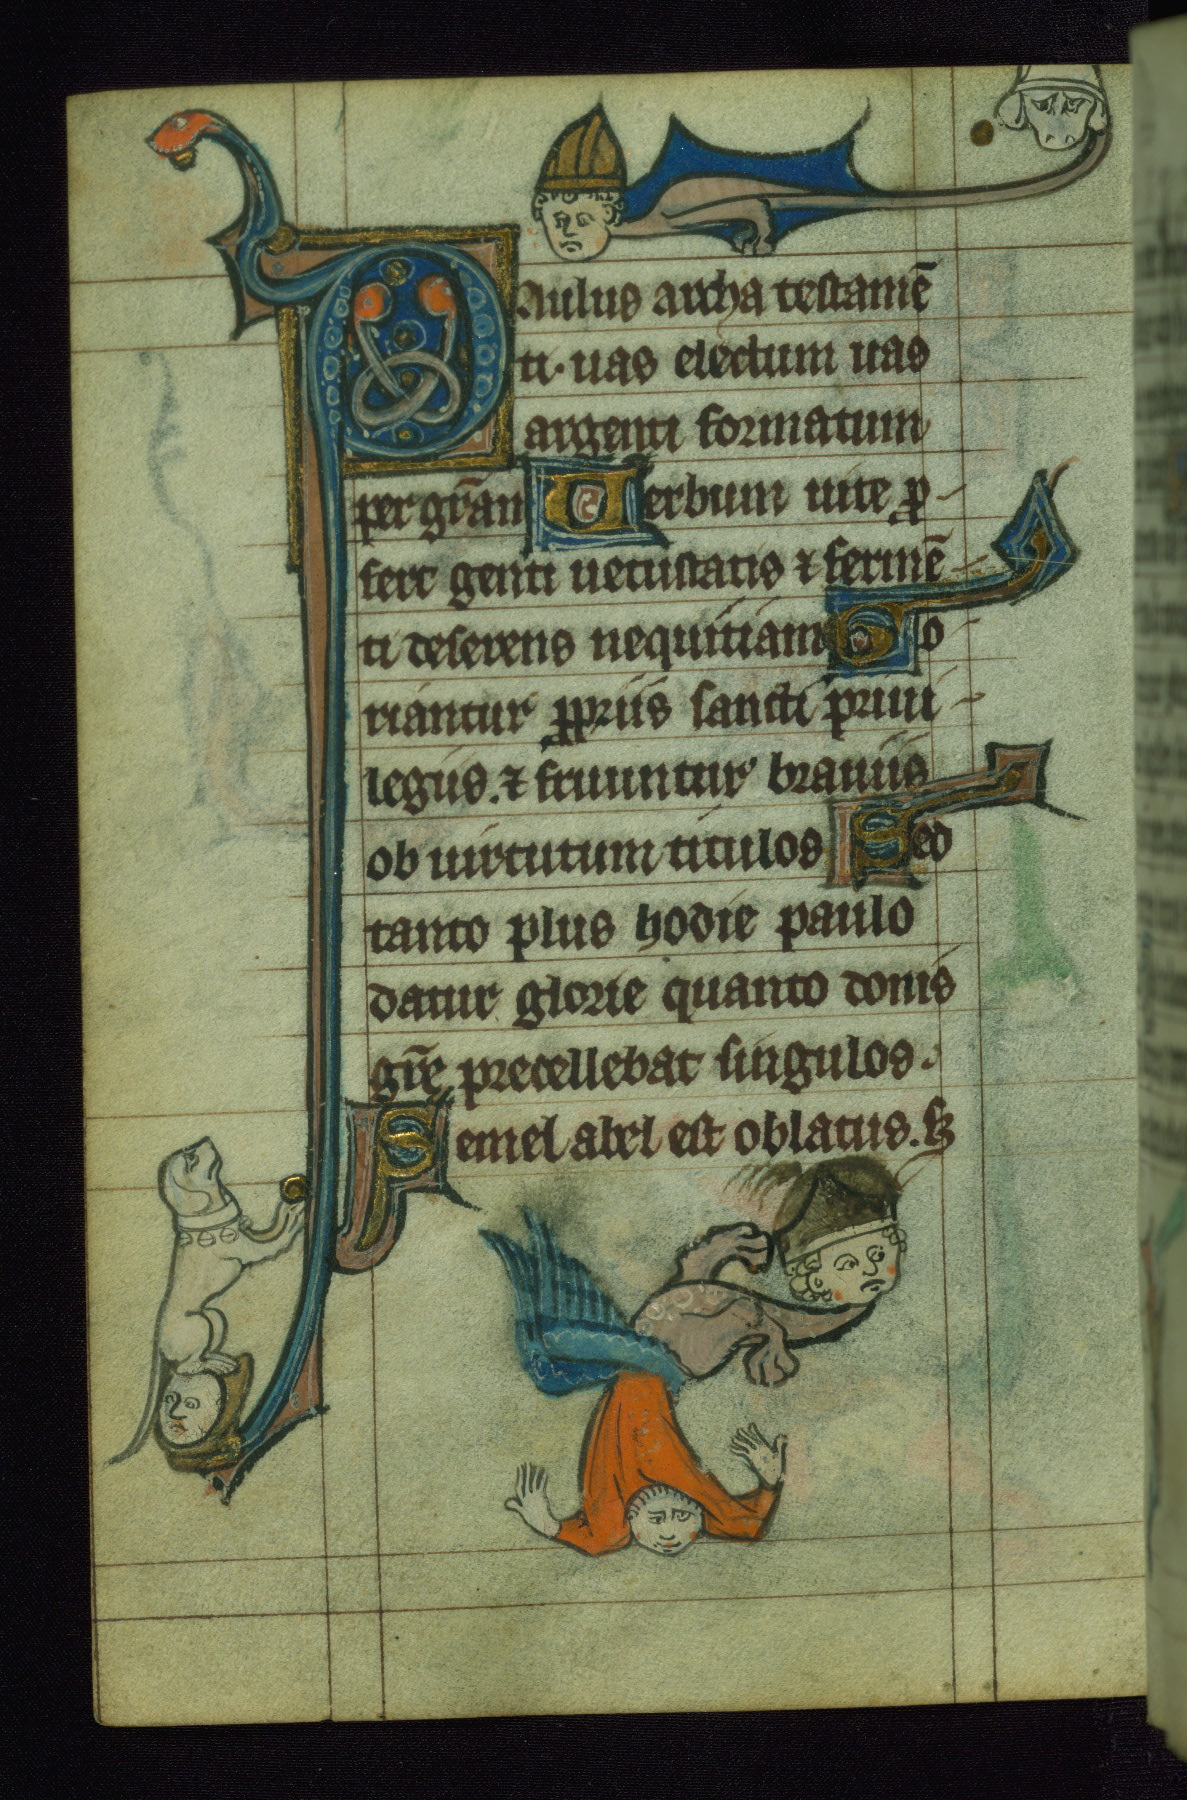 Paulus archa testamē
ti. uas electum uas
argenti formatum
per gr̄am Verbum uite ꝓ-
fert genti uetustatis ⁊ fermē-
ti deserens nequitiam Mo-
riantur ꝓpriis sancti priui-
legiis. ⁊ fruuntur brauiis
ob uirtutum titulos Sed
tanto plus hodie paulo
datur glorie quanto donis
gr̄e precellebat singulos.
Semel abel est oblatus. sꝫ